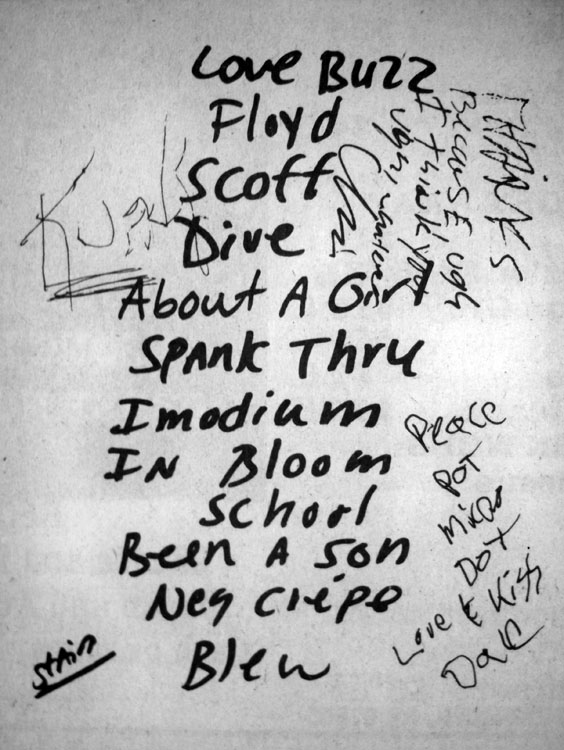 Love Buzz
Floyd
Scoff
Dive
About A Girl
Spank Thru
Imodium
IN Bloom
School
Been A Son
Neg Creepo
Blew
Stain
THANKS
BECAUSE ugh
I think you
ugh
Peace
Pot
Micro
Dot
Love & Kiss
Dale